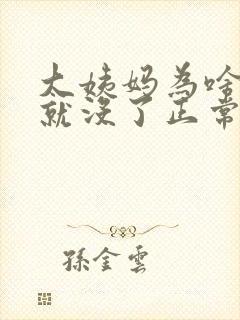 大姨妈為啥
就没了正常
孫金雲